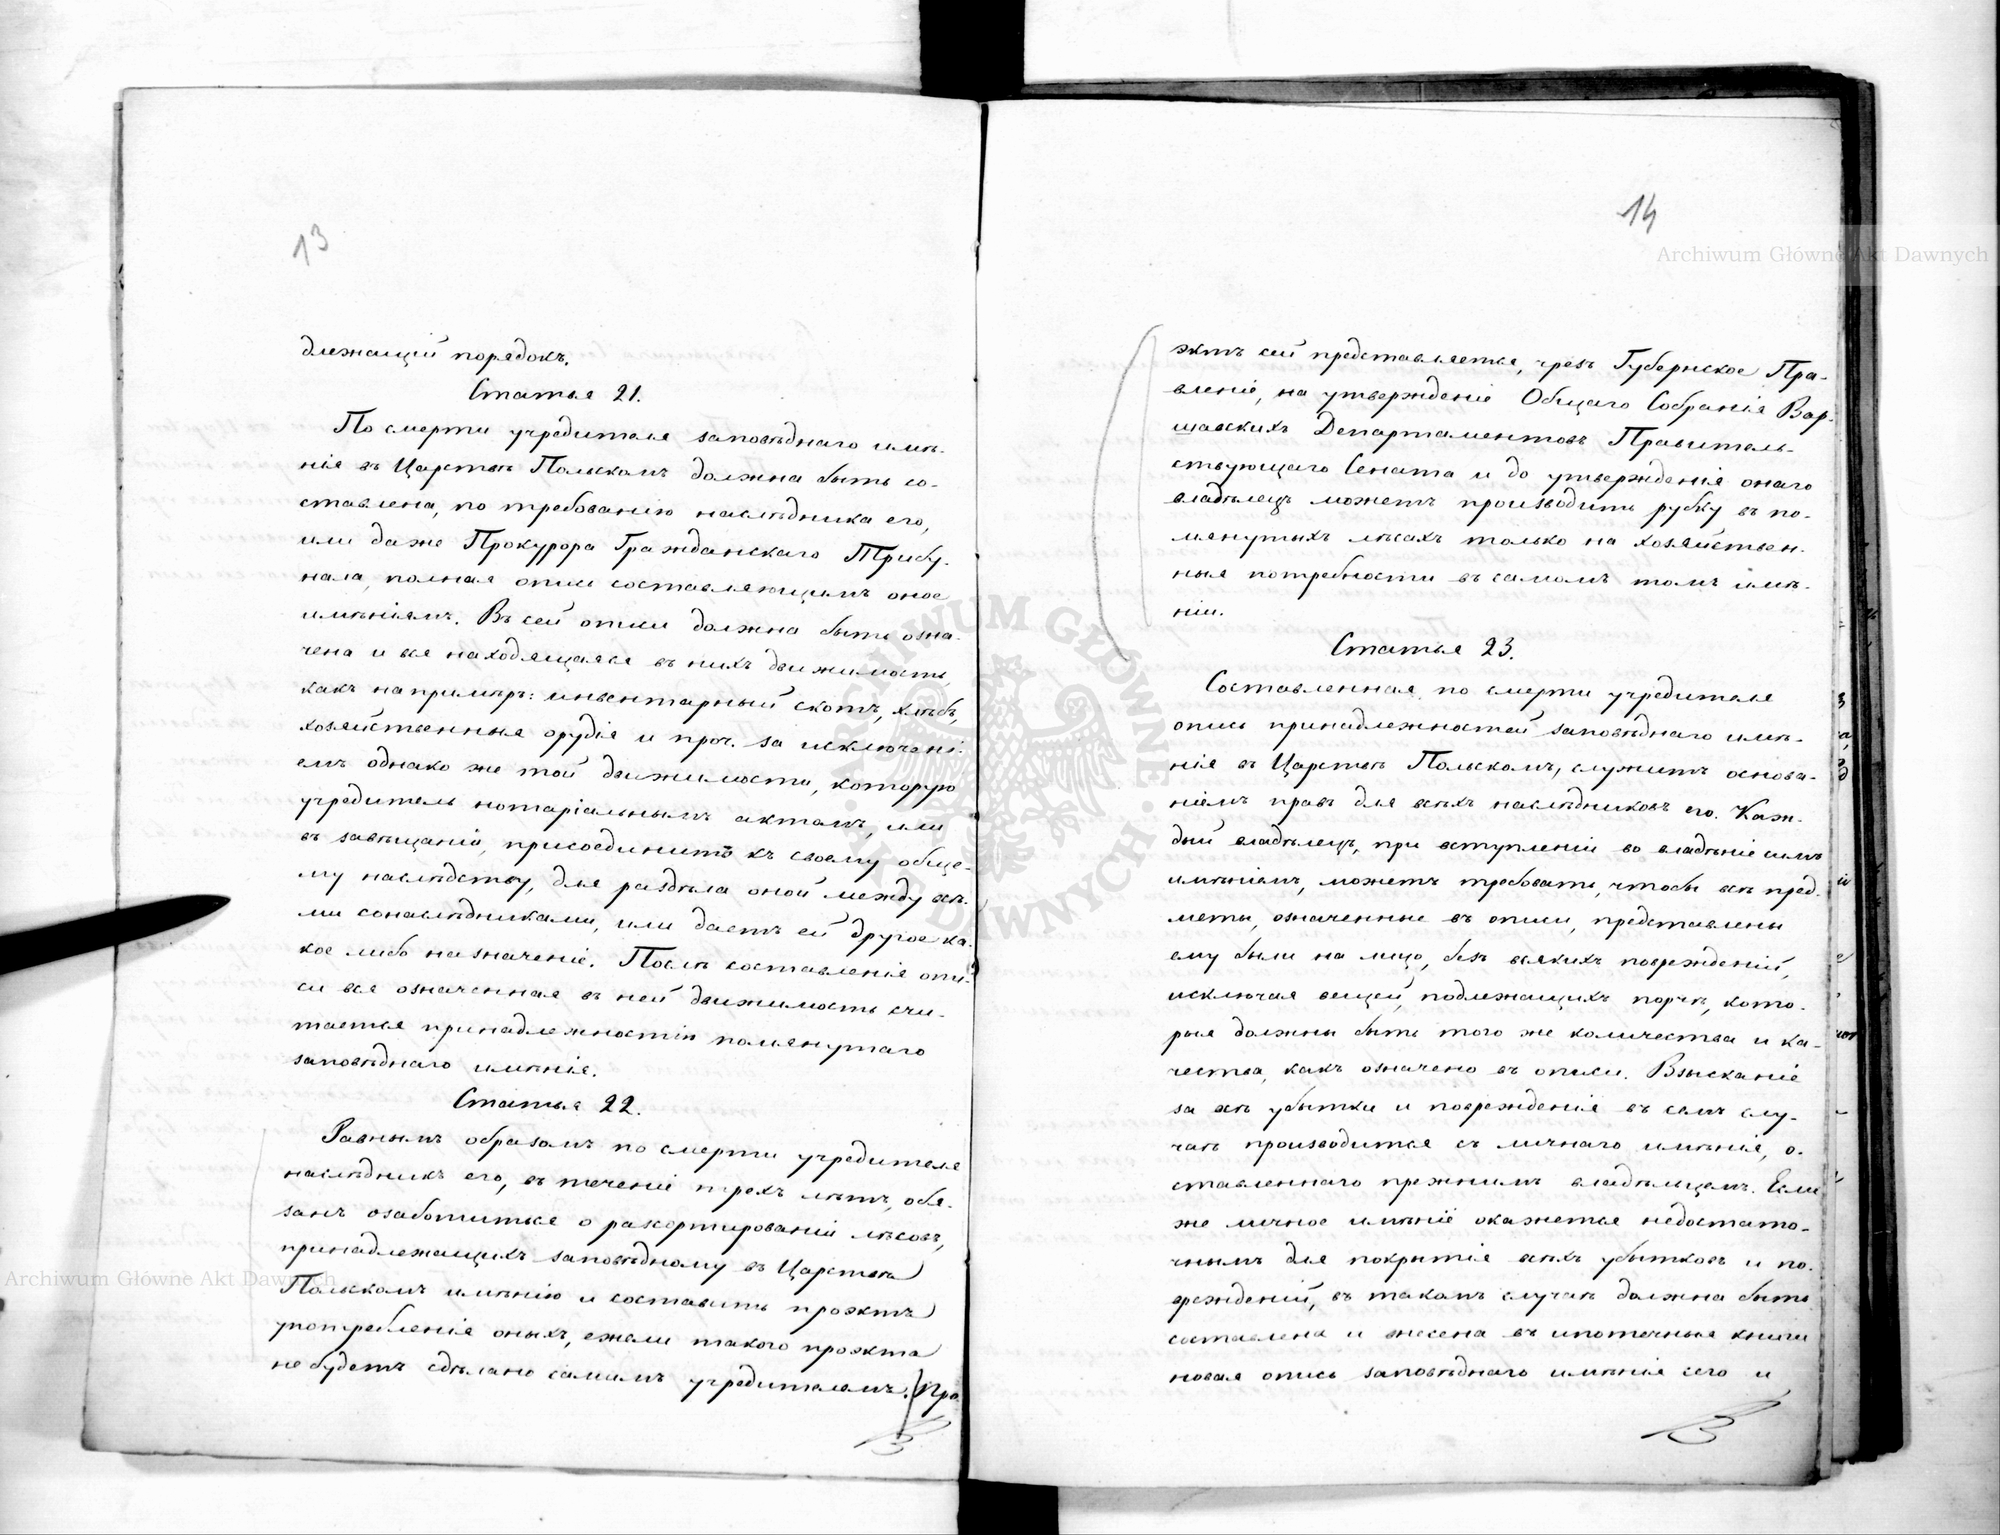 13
длежащій порядокъ.
Статья 21.
По смерти учредителя заповѣднаго имѣ-
нія въ Царствѣ Польскомъ должна быть со-
ставлена, по требованію наслѣдника его,
или даже Прокурора Гражданскаго Трибу-
нала, полная опись составляющимъ оное
имѣніямъ. Въ сей описи должна быть озна-
чена и вся находящаяся въ нихъ движимость,
какъ напримѣръ: инвентарный скотъ, хлѣбъ,
хозяйственныя орудія и проч. за исключені-
емъ однако же той движимости, которую
учредитель нотаріальнымъ актомъ, или
въ завѣщаніи, присоединитъ къ своему обще-
му наслѣдству, для раздѣла оной между всѣ-
ми сонаслѣдниками, или дастъ ей другое ка-
кое либо назначеніе. Послѣ составленія опи-
си вся означенная въ ней движимость счи-
тается принадлежностію помянутаго
заповѣднаго имѣнія.
Статья 22.
Равнымъ образомъ по смерти учредителя
наслѣдникъ его, въ теченіе трехъ лѣтъ, обя-
занъ озаботиться о разсортированіи лѣсовъ,
принадлежащихъ заповѣдному въ Царствѣ
Польскомъ имѣнію и составить проэктъ
употребленія оныхъ, ежели такого проэкта
не будетъ сдѣлано самимъ учредителемъ. Про-
14
эктъ сей представляется, чрезъ Губернское Пра-
вленіе, на утвержденіе Общаго Собранія Вар-
шавскихъ Департаментовъ Правитель-
ствующаго Сената и до утвержденія онаго
владѣлецъ можетъ производить рубку въ по-
мянутыхъ лѣсахъ только на хозяйствен-
ныя потребности въ самомъ томъ имѣ-
ніи.
Статья 23.
Составленная по смерти учредителя
опись принадлежностей заповѣднаго имѣ-
нія въ Царствѣ Польскомъ, служитъ основа-
ніемъ правъ для всѣхъ наслѣдниковъ его. Каж-
дый владѣлецъ, при вступленіи во владѣніе симъ
имѣніемъ, можетъ требовать, чтобы всѣ пред-
меты, означенные въ описи, представлены
ему были на лицо, безъ всякихъ поврежденій,
исключая вещей, подлежащихъ порчѣ, кото-
рыя должны быть того же количества и ка-
чества, какъ означено въ описи. Взысканіе
за всѣ убытки и поврежденія въ семъ слу-
чаѣ производится съ личнаго имѣнія, о-
ставленнаго прежнимъ владѣльцемъ. Если
же личное имѣніе окажется недостато-
чнымъ для покрытія всѣхъ убытковъ и по-
врежденій, въ такомъ случаѣ должна быть
составлена и внесена въ ипотечныя книги
новая опись заповѣднаго имѣнія сего и
Archiwum Główne Akt Dawnych
Archiwum Główne Akt Dawnych
ARCHIWUM GŁÓWNE AKT DAWNYCH